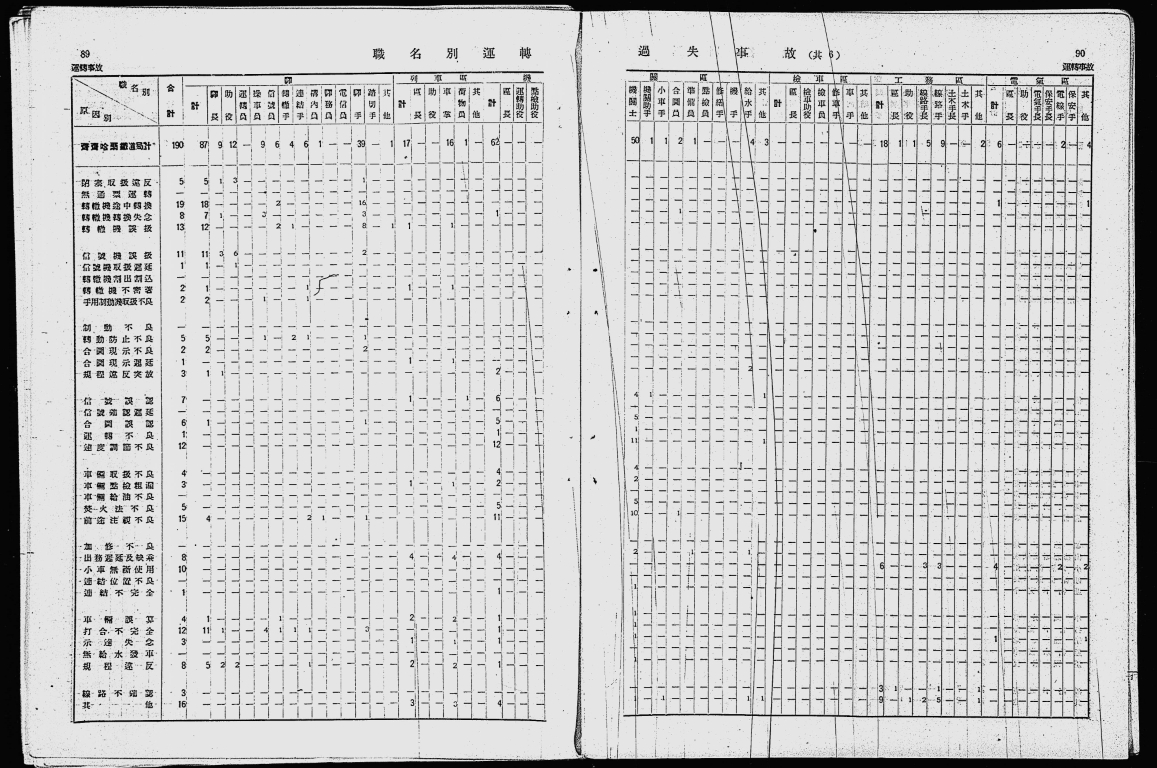 89
運轉事故
職名別運轉
過失事故(其6)
90
運轉事故
職名別
原因別
合計
驛
列車區
機
關區
檢車區
工務區
電氣區
計 驛長 助役 運轉員 操車員 信號員 轉轍手 連結手 構內員 驛務員 電信員 驛手 踏切手 其他
計 區長 助役 車掌 荷物員 其他
計 區長 運轉助役 點檢助役
機關士 機關助手 小車手 合圖員 準備員 點檢員 修繕手 機手 給水手 其他
計 區長 檢車助役 檢車員 修車手 車手 其他
計 區長 助役 線路手長 線路手 土木手長 土木手 其他
計 區長 助役 電氣手長 保安手長 電線手 保安手 其他
齊齊哈爾鐵道局計 190 87 9 12 — 9 6 4 6 1 — — 39 — 1 17 — — 16 1 — 62 — — —
50 1 1 2 1 — — — 4 3 — — — — — — — 18 1 1 5 9 — — 2 6 — — — — 2 — 4
閉塞取扱違反 5 5 1 3 1
無通票運轉
轉轍機途中轉換 19 18 2 16 1 1
轉轍機轉換失念 8 7 1 3 3 1 1
轉轍機誤扱 13 12 2 1 8 1 1 1
信號機誤扱 11 11 3 6 2
信號機取扱遲延 1 1 1
轉轍機割出割込
轉轍機不密着 2 1 1 1 1
手用制動機取扱不良 2 2 1 1
制動不良
轉動防止不良 5 5 1 2 1 1
合圖現示不良 2 2 2
合圖現示遲延 1 1 1
規程違反突放 3 1 1 2 2
信號誤認 7 1 1 6 4 1 1
信號確認遲延
合圖誤認 6 1 1 5 5
運轉不良 1 1 1
速度調節不良 12 12 11 1
車輛取扱不良 4 4 4
車輛點檢粗漏 3 1 1 2 2
車輛給油不良
焚火法不良 5 5 5
前途注視不良 15 4 2 1 1 11 10 1
加修不良
出務遲延及缺乘 8 4 4 4 2 1 1
小車無斷使用 10 6 3 3 4 2 2
連結位置不良
連結不完全 1 1 1
車輛誤算 4 1 1 2 2 1 1
打合不完全 12 11 1 4 1 1 1 3 1 1
示達失念 3 1 1 1 1 1 1
無給水發車
規程違反 8 5 2 2 1 2 2 1 1
線路不確認 3 3 1 1 1
其他 16 3 3 4 1 1 1 9 1 2 5 1